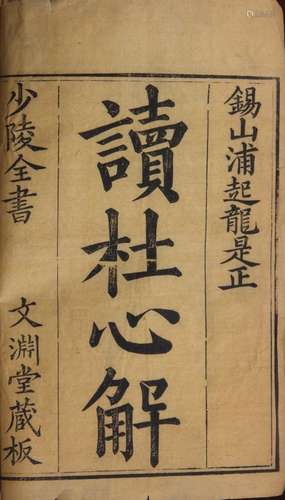 錫山浦起龍是正
讀杜心解
少陵全書
文淵堂蔵板